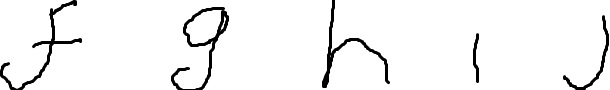 f g h i j